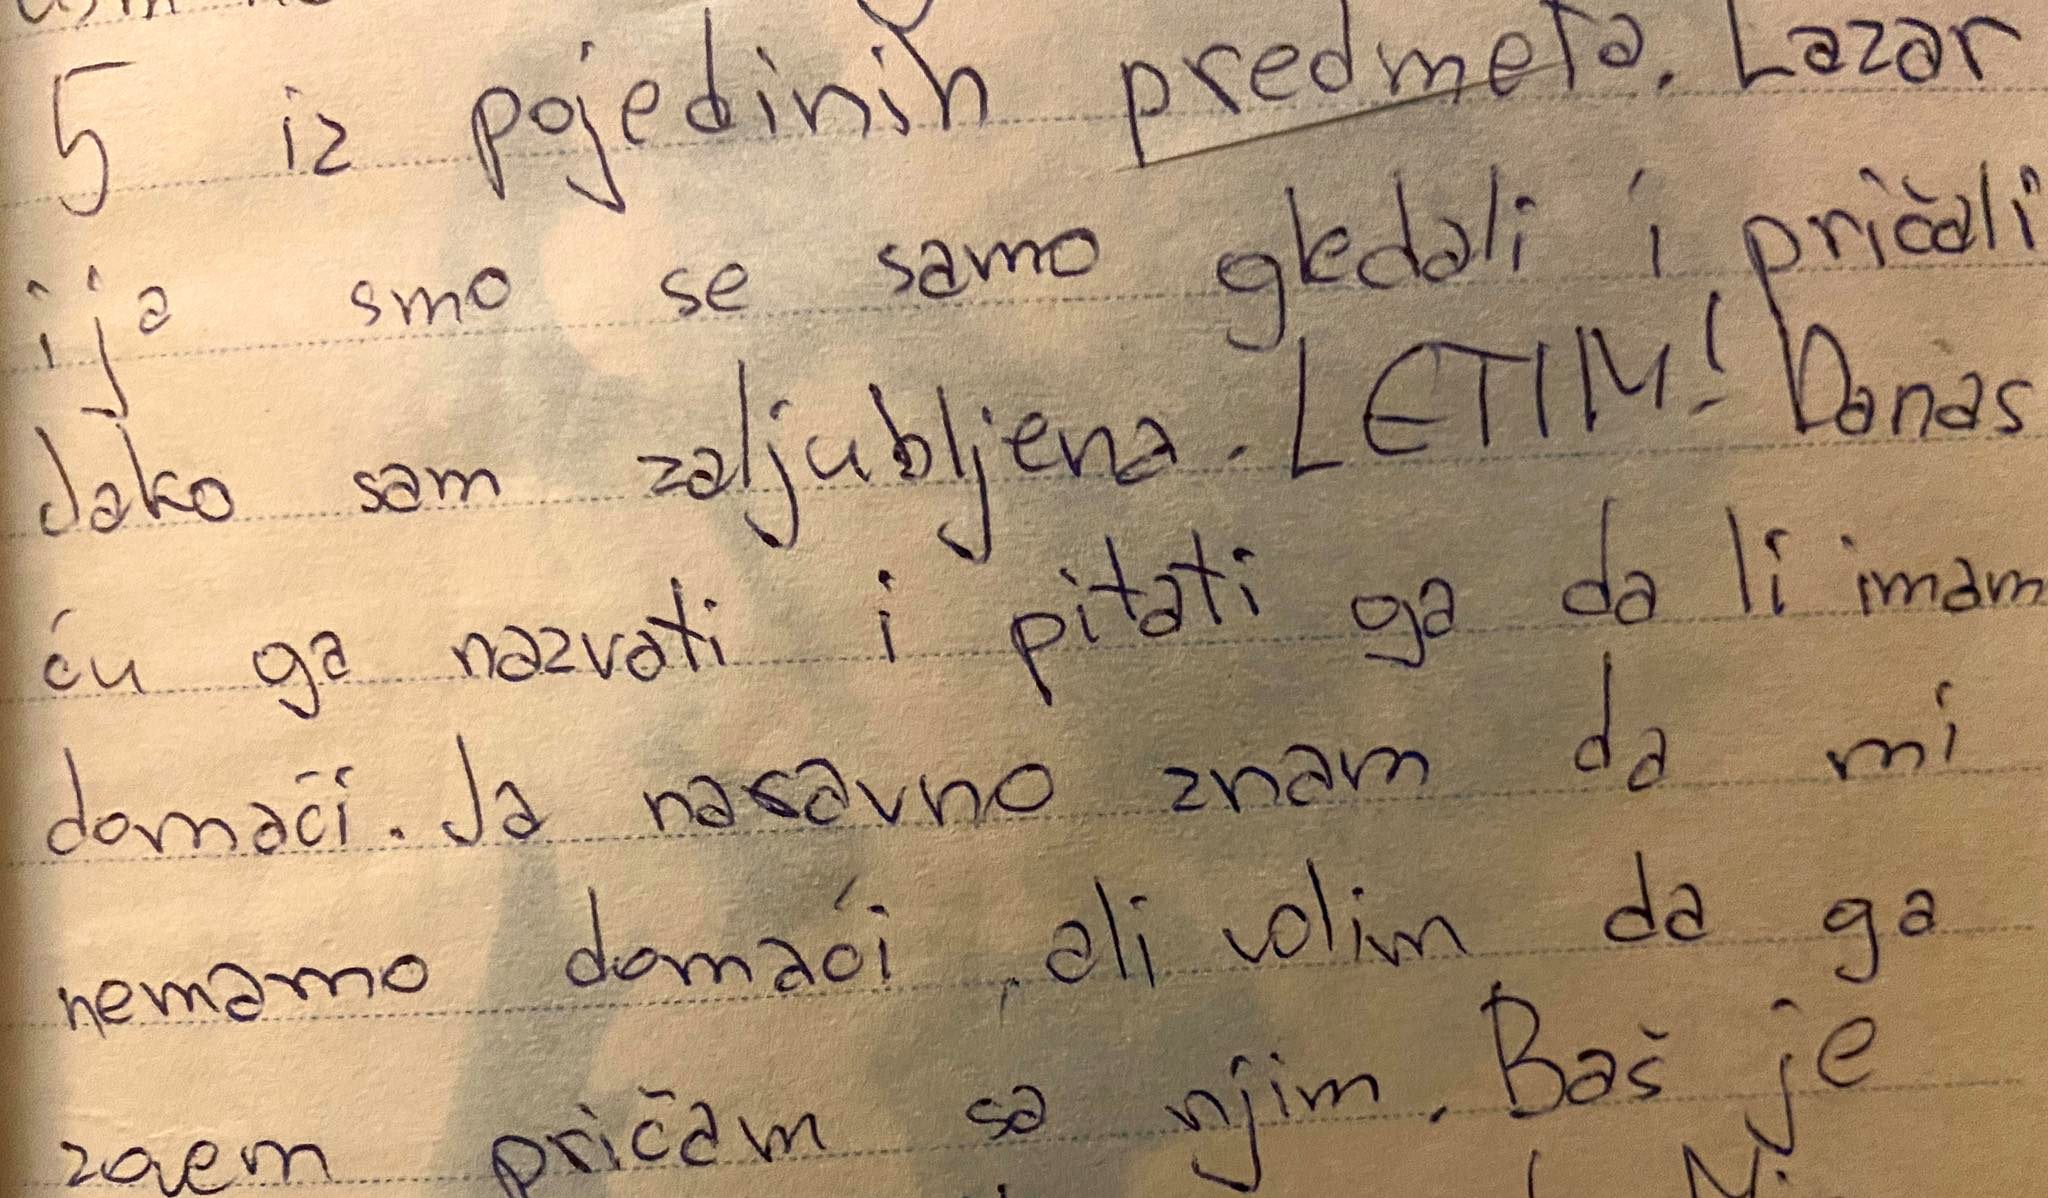 5 iz pojedinih predmeta. Lazar
i ja smo se samo gledali i pričali
Jako sam zaljubljena. LETIM! Danas
ću ga nazvati i pitati ga da li imam
domaći. Ja nasavno znam da mi
nemamo domaći, ali volim da ga
zovem pričam sa njim. Baš je